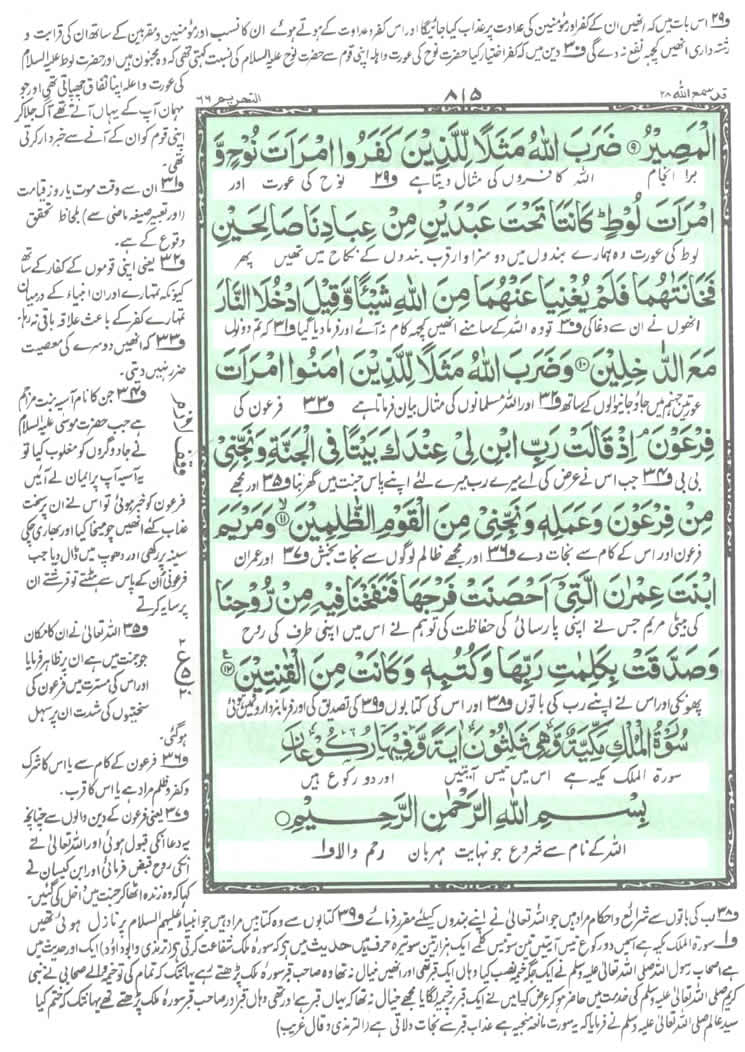 و۲۹ اس بات میں کہ انھیں ان کے کفر اور مؤمنین کی عداوت پر عذاب کیا جائیگا اور اس کفر و عداوت کے ہوتے ہوئے ان کا نسب اور مؤمنین و مقربین کے ساتھ ان کی قرابت و
رشتہ داری انھیں کچھ نفع نہ دے گی و۳۰ دین میں کہ کفر اختیار کیا حضرت نوح کی عورت واہلہ اپنی قوم سے حضرت نوح علیہ السلام کی نسبت کہتی تھی کہ وہ مجنون ہیں اور حضرت لوط علیہ السلام
کی عورت واعلہ اپنا نفاق چھپاتی تھی اور جو
مہمان آپ کے یہاں آتے تھے آگ جلا کر
اپنی قوم کو ان کے آنے سے خبردار کرتی
تھی۔
و۳۱ ان سے وقت موت یا روز قیامت
(اور تعبیر صیغہ ماضی سے) بلحاظ تحقق
وقوع کے ہے۔
و۳۲ یعنی اپنی قوموں کے کفار کے ساتھ
کیونکہ تمہارے اور ان انبیاء کے درمیان
تمہارے کفر کے باعث علاقہ باقی نہ رہا۔
و۳۳ کہ انھیں دوسرے کی معصیت
ضرر نہیں دیتی۔
و۳۴ جن کا نام آسیہ بنت مزاحم
ہے جب حضرت موسی علیہ السلام
نے جادوگروں کو مغلوب کیا تو
یہ آسیہ آپ پر ایمان لے آئیں
فرعون کو خبر ہوئی تو اس نے ان پر سخت
عذاب کئے انھیں چومیخا کیا اور بھاری چکی
سینہ پر رکھی اور دھوپ میں ڈال دیا جب
فرعونی ان کے پاس سے ہٹتے تو فرشتے ان
پر سایہ کرتے
و۳۵ اللہ تعالیٰ نے ان کا مکان
جو جنت میں ہے ان پر ظاہر فرمایا
اور اس کی مسرت میں فرعون کی
سختیوں کی شدت ان پر سہل
ہوگئی۔
و۳۶ فرعون کے کام سے یا اس کا شرک
و کفر و ظلم مراد ہے یا اس کا قرب۔
و۳۷ یعنی فرعون کے دین والوں سے چنانچہ
یہ دعا انکی قبول ہوئی اور اللہ تعالیٰ نے
انکی روح قبض فرمائی اور ابن کیسان نے
کہا کہ وہ زندہ اٹھا کر جنت میں داخل کی گئیں۔
قد سمع اللہ ۲۸
۸۱۵
التحریم ۶۶
الْمَصِيْرُ ۹ ضَرَبَ اللّٰهُ مَثَلًا لِّلَّذِيْنَ كَفَرُوا امْرَاَتَ نُوْحٍ وَّ
برا انجام اللہ کافروں کی مثال دیتا ہے و۲۹ نوح کی عورت اور
امْرَاَتَ لُوْطٍ ؕ كَانَتَا تَحْتَ عَبْدَيْنِ مِنْ عِبَادِنَا صَالِحَيْنِ
لوط کی عورت وہ ہمارے بندوں میں دو سزاوار قرب بندوں کے نکاح میں تھیں پھر
فَخَانَتٰهُمَا فَلَمْ يُغْنِيَا عَنْهُمَا مِنَ اللّٰهِ شَيْـًٔا وَّقِيْلَ ادْخُلَا النَّارَ
انھوں نے ان سے دغا کی و۳۰ تو وہ اللہ کے سامنے انھیں کچھ کام نہ آئے اور فرما دیا گیا و۳۱ کہ تم دونوں
مَعَ الدّٰخِلِيْنَ ۱۰ وَضَرَبَ اللّٰهُ مَثَلًا لِّلَّذِيْنَ اٰمَنُوا امْرَاَتَ
عورتیں جہنم میں جاؤ جانیوالوں کے ساتھ و۳۲ اور اللہ مسلمانوں کی مثال بیان فرماتا ہے و۳۳ فرعون کی
فِرْعَوْنَ ۘ اِذْ قَالَتْ رَبِّ ابْنِ لِيْ عِنْدَكَ بَيْتًا فِي الْجَنَّةِ وَنَجِّنِيْ
بی بی و۳۴ جب اس نے عرض کی اے میرے رب میرے لئے اپنے پاس جنت میں گھر بنا و۳۵ اور مجھے
مِنْ فِرْعَوْنَ وَعَمَلِهٖ وَنَجِّنِيْ مِنَ الْقَوْمِ الظّٰلِمِيْنَ ۱۱ وَمَرْيَمَ
فرعون اور اس کے کام سے نجات دے و۳۶ اور مجھے ظالم لوگوں سے نجات بخش و۳۷ اور عمران
ابْنَتَ عِمْرٰنَ الَّتِيْٓ اَحْصَنَتْ فَرْجَهَا فَنَفَخْنَا فِيْهِ مِنْ رُّوْحِنَا
کی بیٹی مریم جس نے اپنی پارسائی کی حفاظت کی تو ہم نے اس میں اپنی طرف کی روح
وَصَدَّقَتْ بِكَلِمٰتِ رَبِّهَا وَكُتُبِهٖ وَكَانَتْ مِنَ الْقٰنِتِيْنَ ۱۲
پھونکی اور اس نے اپنے رب کی باتوں و۳۸ اور اس کی کتابوں و۳۹ کی تصدیق کی اور فرمانبرداروں میں ہوئی
سُوْرَةُ الْمُلْكِ مَكِّيَّةٌ وَّهِيَ ثَلٰثُوْنَ اٰيَةً وَّفِيْهَا رُكُوْعَانِ
سورۃ الملک مکیہ ہے اس میں تیس آیتیں اور دو رکوع ہیں
بِسْمِ اللّٰهِ الرَّحْمٰنِ الرَّحِيْمِ
اللہ کے نام سے شروع جو نہایت مہربان رحم والا و۱
و۳۸ رب کی باتوں سے شرائع و احکام مراد ہیں جو اللہ تعالیٰ نے اپنے بندوں کیلئے مقرر فرمائے و۳۹ کتابوں سے وہ کتابیں مراد ہیں جو انبیاء علیہم السلام پر نازل ہوئی تھیں
و۱ سورۃ الملک مکیہ ہے اسمیں دو رکوع تیس آیتیں تین سو تیس کلمے ایک ہزار تین سو تیرہ حرف ہیں حدیث میں ہے کہ سورۂ ملک شفاعت کرتی ہے (ترمذی و ابوداؤد) ایک اور حدیث میں
ہے اصحاب رسول اللہ صلی اللہ تعالیٰ علیہ وسلم نے ایک جگہ خیمہ نصب کیا وہاں ایک قبر تھی اور انھیں خیال نہ تھا وہ صاحب قبر سورۂ ملک پڑھتے رہے یہاں تک کہ تمام کی تو خیمہ والے صحابی نے نبی
کریم صلی اللہ تعالیٰ علیہ وسلم کی خدمت میں حاضر ہو کر عرض کیا میں نے ایک قبر پر خیمہ لگایا مجھے خیال نہ تھا کہ یہاں قبر ہے اور تھی وہاں قبر اور صاحب قبر سورۂ ملک پڑھتے تھے یہاں تک کہ ختم کیا
سید عالم صلی اللہ تعالیٰ علیہ وسلم نے فرمایا کہ یہ سورت مانعہ منجیہ ہے عذاب قبر سے نجات دلاتی ہے (الترمذی وقال غریب)